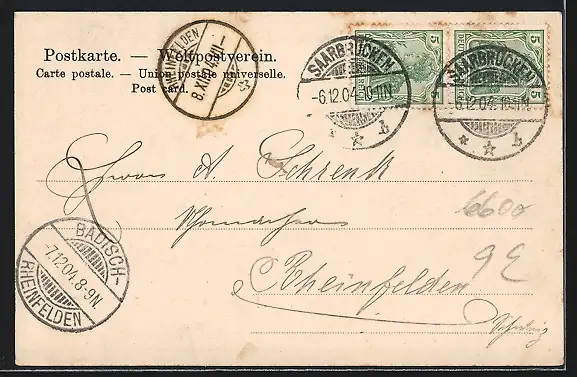 Postkarte. — Weltpostverein.
Carte postale. — Union postale universelle.
Post card.
RHEINFELDEN
8.XII.04
SAARBRÜCKEN
-6.12.04.10-11N
* * b
SAARBRÜCKEN
6.12.04.10-11N
* * b
5
5
Herrn A. Schrenk
6600
Rheinfelden
9 E
Schweiz
BADISCH-
-7.12.04.8-9N.
RHEINFELDEN